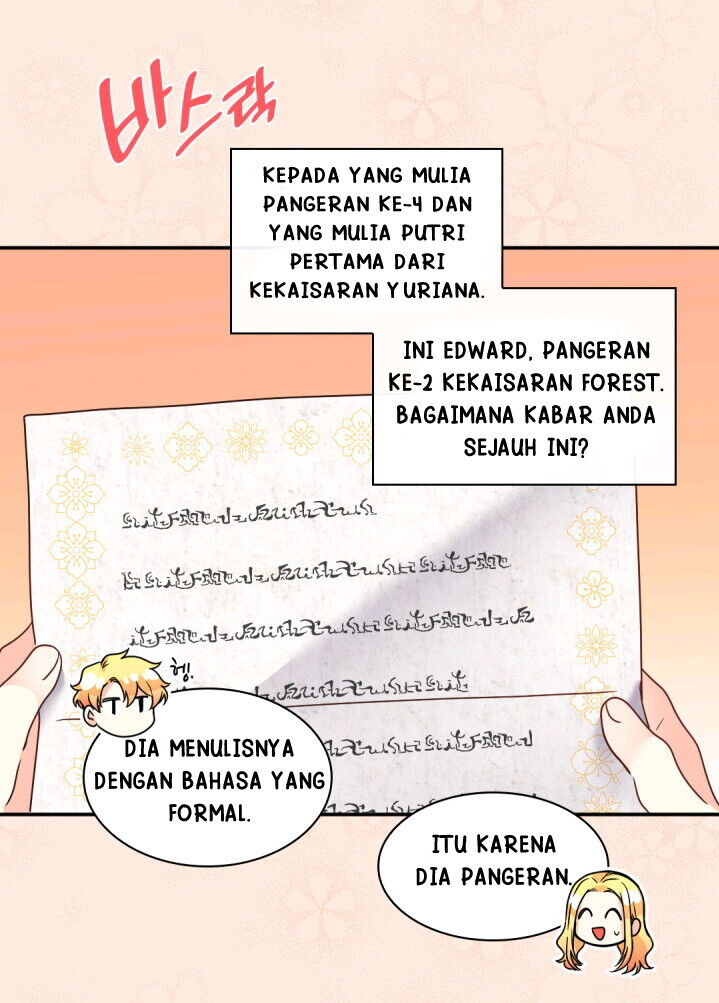 바스락
KEPADA YANG MULIA
PANGERAN KE-4 DAN
YANG MULIA PUTRI
PERTAMA DARI
KEKAISARAN YURIANA.
INI EDWARD, PANGERAN
KE-2 KEKAISARAN FOREST.
BAGAIMANA KABAR ANDA
SEJAUH INI?
헹!
DIA MENULISNYA
DENGAN BAHASA YANG
FORMAL.
ITU KARENA
DIA PANGERAN.